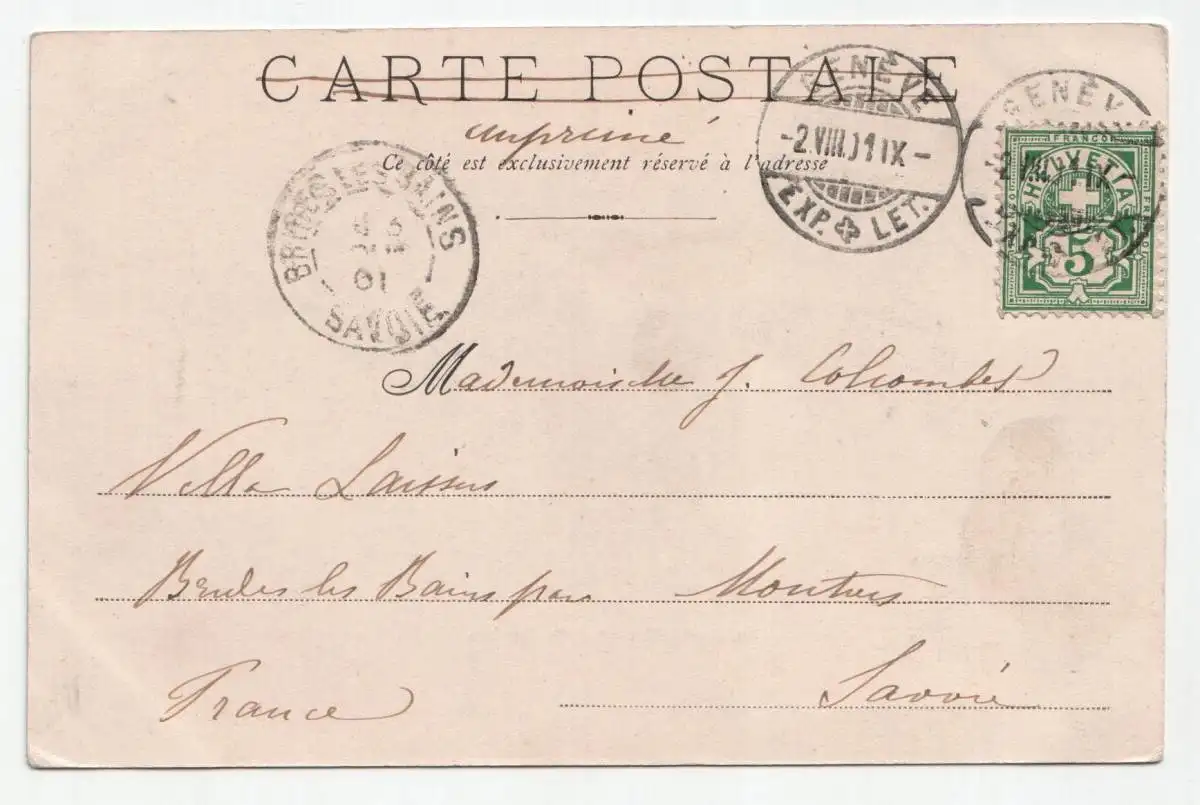 CARTE POSTALE
imprimé
Ce côté est exclusivement réservé à l'adresse
GENÈVE
-2.VIII.01 IX-
EXP. LET.
GENÈV
2.VIII
FRANCO
HELVETIA
5
BRIDES LES BAINS
01
SAVOIE
Mademoiselle J. Colombet
Villa Laissus
Brides les Bains par Moutiers
Savoie
France